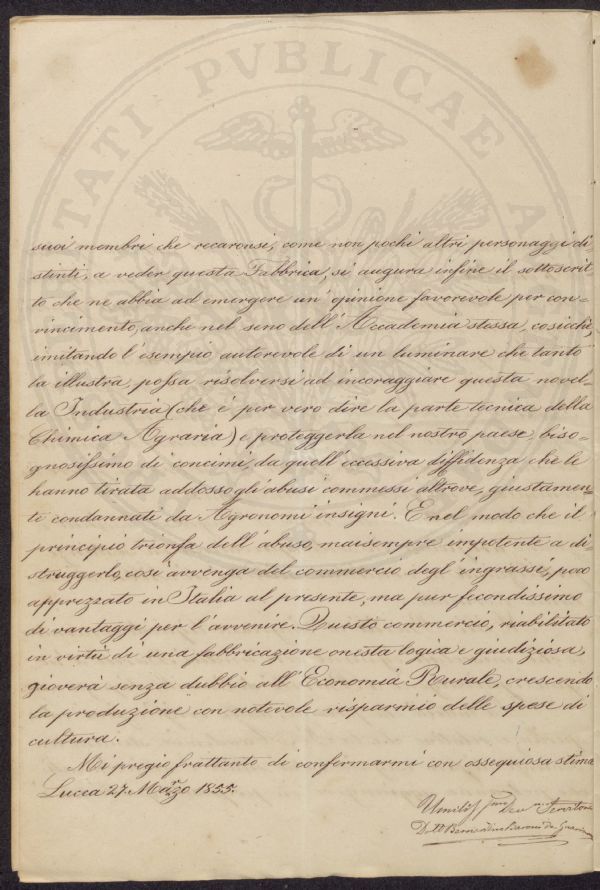 TATI PVBLICAE A
suoi membri che recaronsi, come non pochi altri personaggi di
stinti, a veder questa Fabbrica, si augura infine il sottoscrit-
to che ne abbia ad emergere un' opinione favorevole per con-
vincimento, anche nel seno dell' Accademia stessa, cosicchè,
imitando l' esempio autorevole di un luminare che tanto
la illustra, possa risolversi ad incoraggiare questa novel-
la Industria (che è per vero dire la parte tecnica della
Chimica Agraria) e proteggerla nel nostro paese, biso-
gnosissimo di concimi, da quell' eccessiva diffidenza che le
hanno tirata addosso gli abusi commessi altrove, giustamen-
te condannati da Agronomi insigni. E nel modo che il
principio trionfa dell' abuso, maisempre impotente a di-
struggerlo, così avvenga del commercio degl' ingrassi, poco
apprezzato in Italia al presente, ma pur fecondissimo
di vantaggi per l' avvenire. Questo commercio, riabilitato
in virtù di una fabbricazione onesta logica e giudiziosa,
gioverà senza dubbio all' Economia Rurale, crescendo
la produzione con notevole risparmio delle spese di
cultura.
Mi pregio frattanto di confermarmi con ossequiosa stima
Lucca 27 Marzo 1855.
Umilis.mo Dev.mo Servitore
Dott. Bernardino Baroni